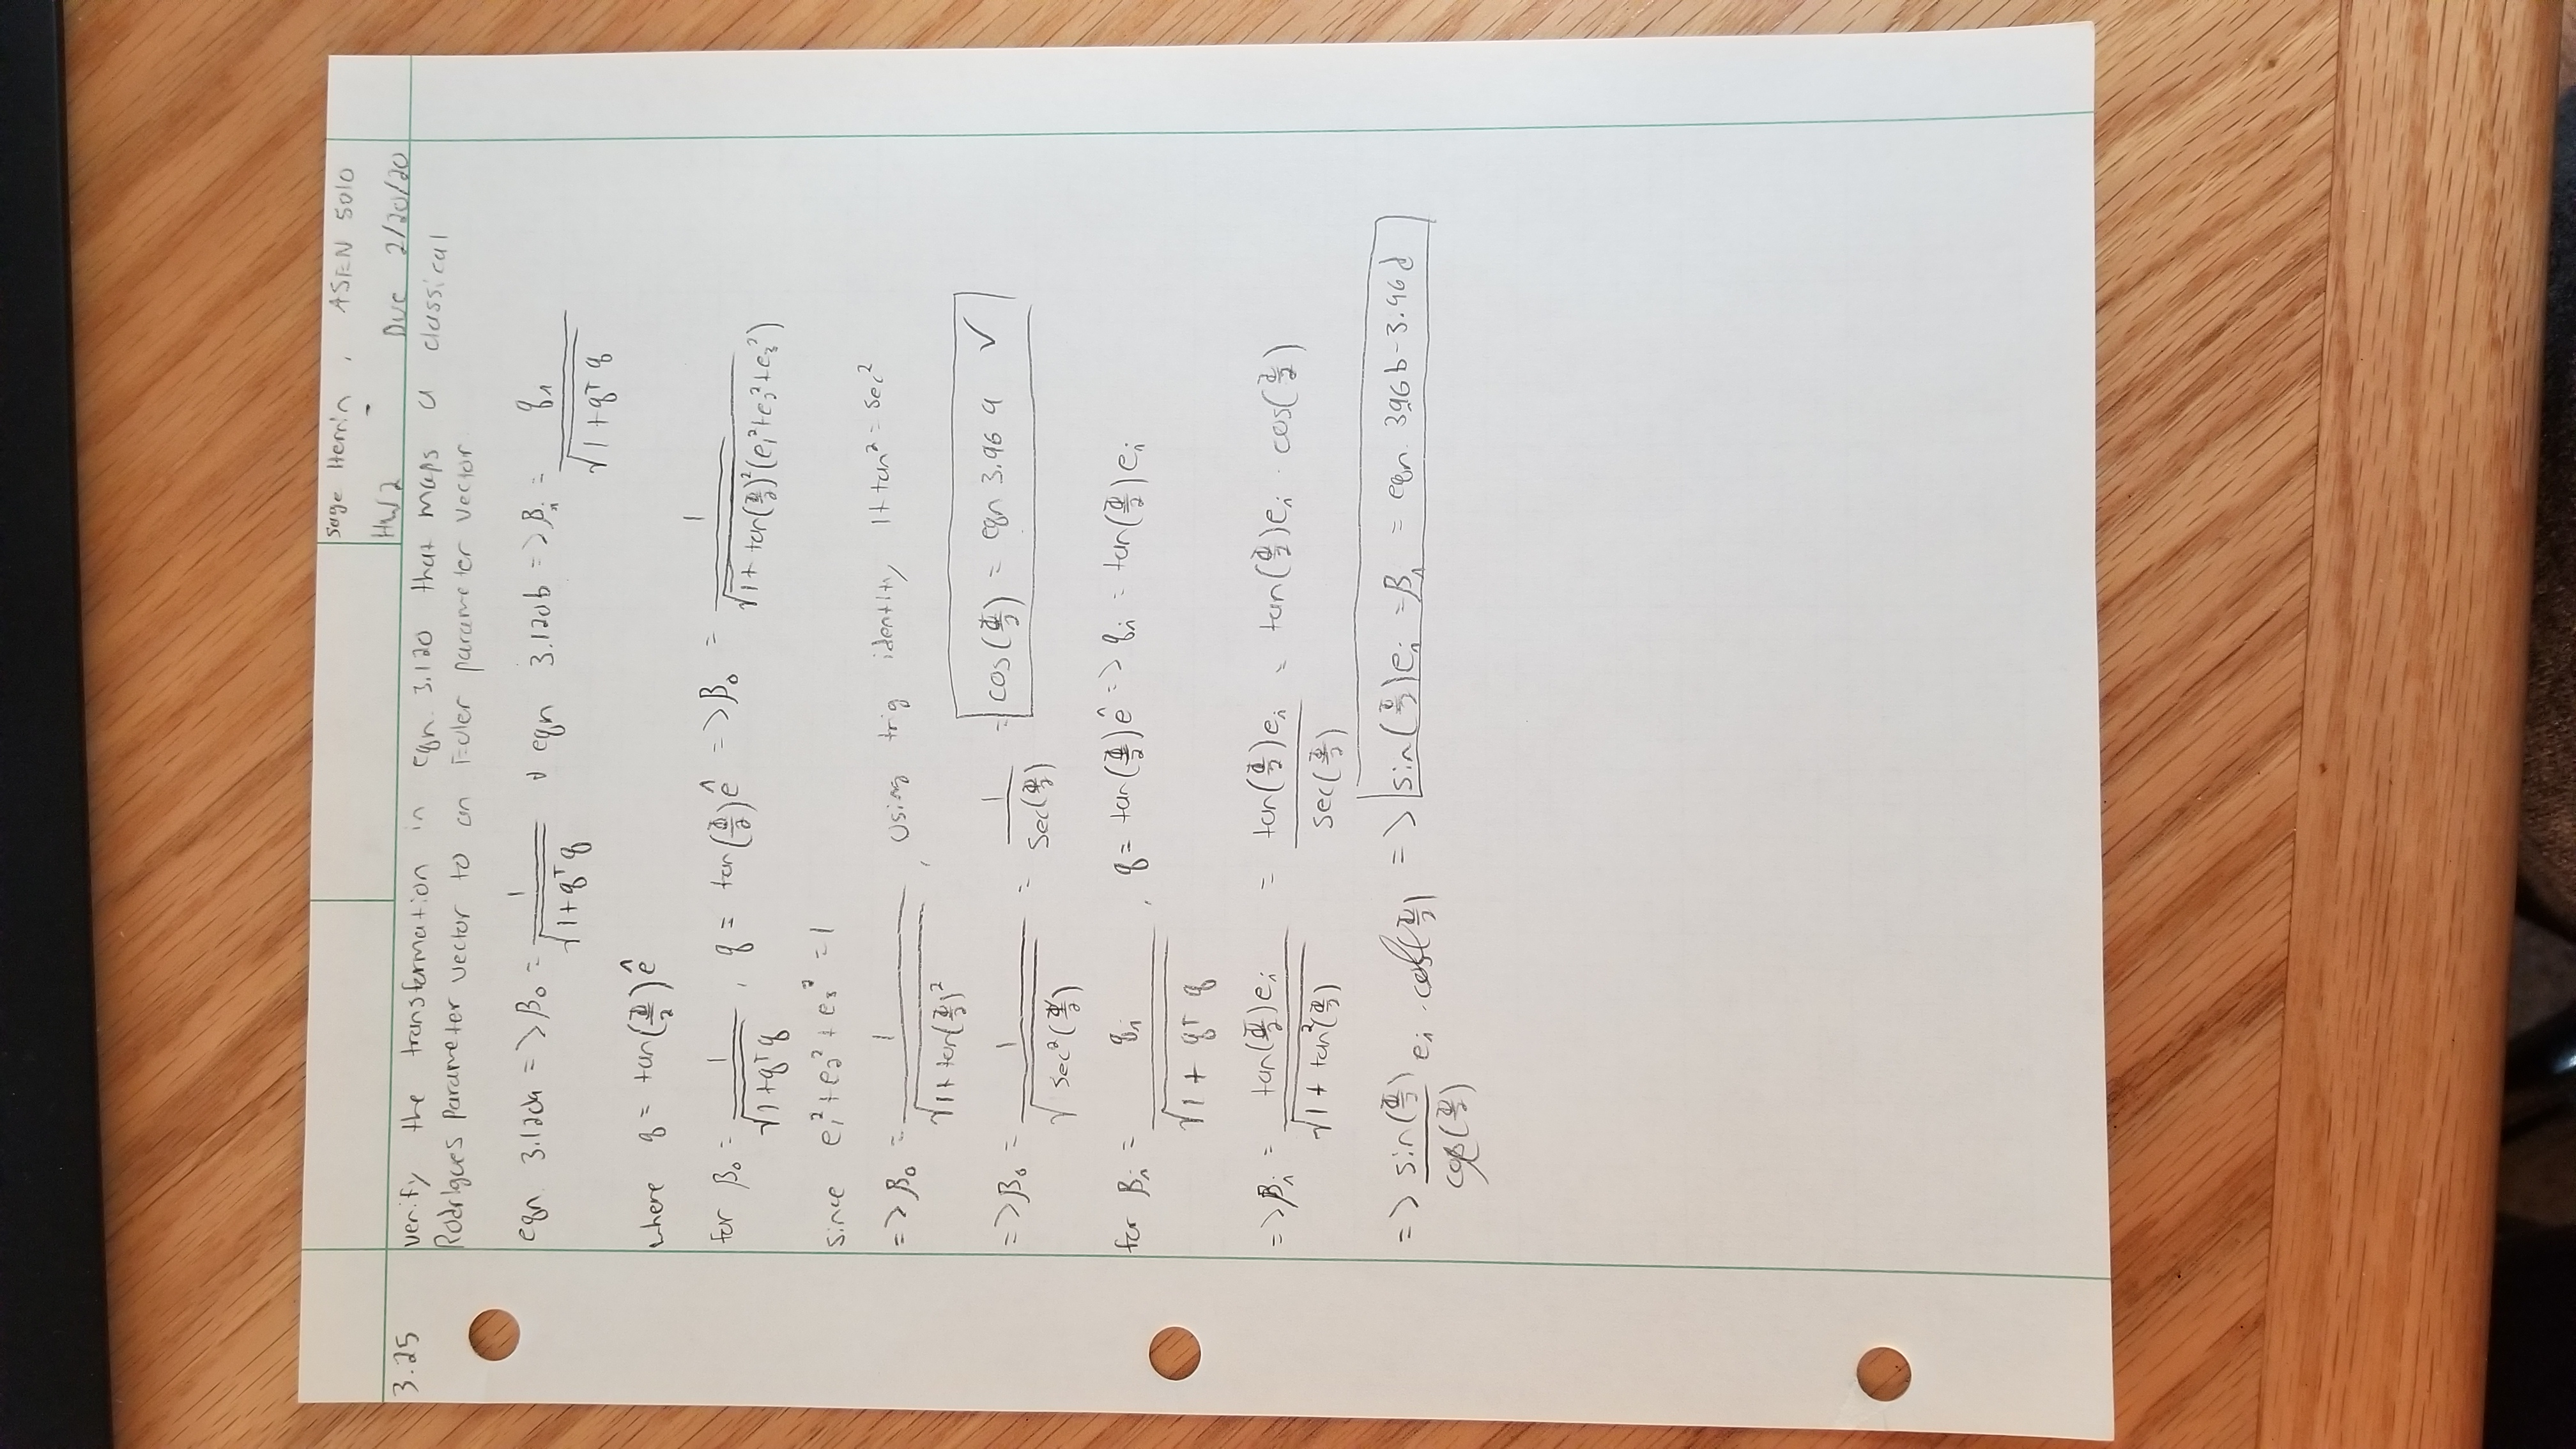 Sage Herrin, ASEN 5010
HW 2 Due 2/20/20
3.25 verify the transformation in eqn. 3.120 that maps a classical
Rodrigues Parameter vector to an Euler parameter vector
eqn 3.120a => β₀ = 1/√(1+qᵀq) & eqn 3.120b => βᵢ = qᵢ/√(1+qᵀq)
where q = tan(Φ/2)ê
for β₀ = 1/√(1+qᵀq), q = tan(Φ/2)ê => β₀ = 1/√(1+tan(Φ/2)²(e₁²+e₂²+e₃²))
since e₁²+e₂²+e₃² = 1
=> β₀ = 1/√(1+tan(Φ/2)²), using trig identity 1+tan² = sec²
=> β₀ = 1/√(sec²(Φ/2)) = 1/sec(Φ/2) = cos(Φ/2) = eqn 3.96 a ✓
for βᵢ = qᵢ/√(1+qᵀq), q = tan(Φ/2)ê => qᵢ = tan(Φ/2)eᵢ
=> βᵢ = tan(Φ/2)eᵢ/√(1+tan²(Φ/2)) = tan(Φ/2)eᵢ/sec(Φ/2) = tan(Φ/2)eᵢ · cos(Φ/2)
=> sin(Φ/2)/cos(Φ/2) eᵢ · cos(Φ/2) => sin(Φ/2)eᵢ = βᵢ = eqn. 3.96b-3.96d